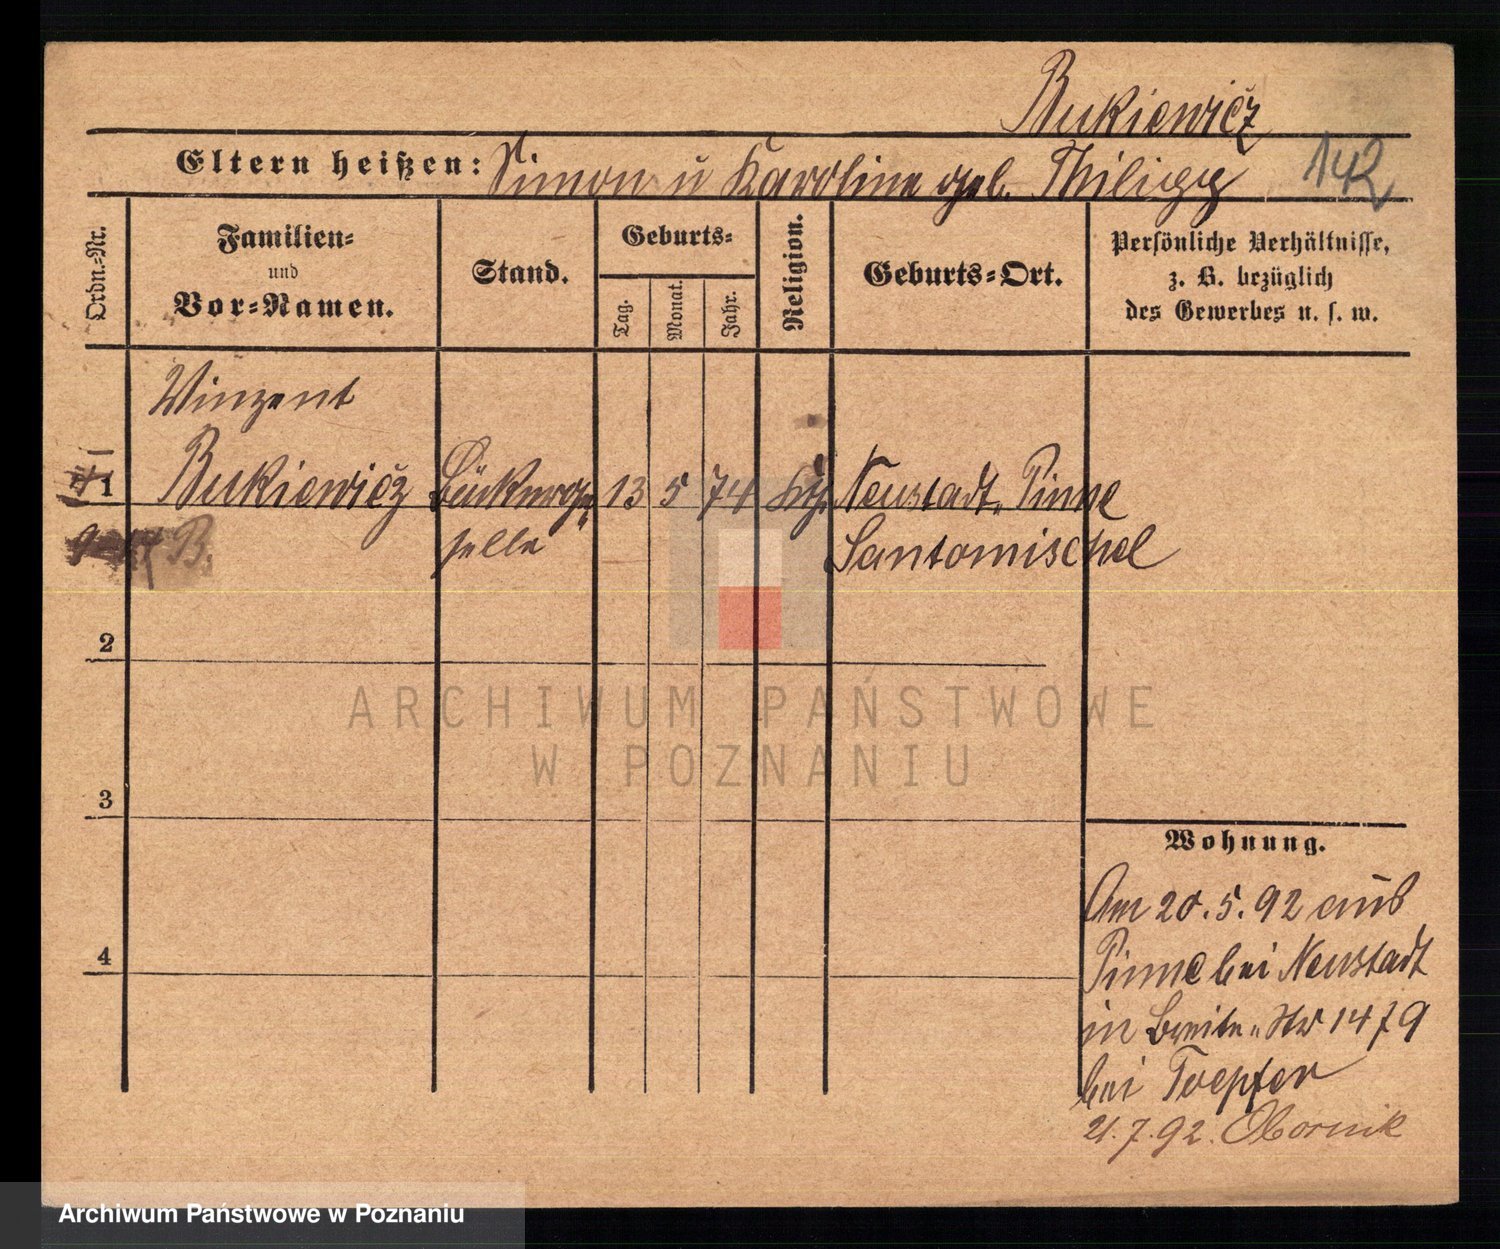 Bukiewicz
Eltern heißen: Simon u Karoline geb. Philipp
142
Ordn.-Nr.
Familien-
und
Vor-Namen.
Stand.
Geburts-
Tag.
Monat.
Jahr.
Religion.
Geburts-Ort.
Persönliche Verhältnisse,
z. B. bezüglich
des Gewerbes u. s. w.
Winzent
1 Bukiewicz Bäckerge- 13 5 74 kth. Neustadt. Pinne
selle Santomischel
2
3
4
Wohnung.
Am 20.5.92 aus
Pinne bei Neustadt
in Breite-Str 14/79
bei Toepfer
21.7.92. Obornik
ARCHIWUM PAŃSTWOWE
W POZNANIU
Archiwum Państwowe w Poznaniu